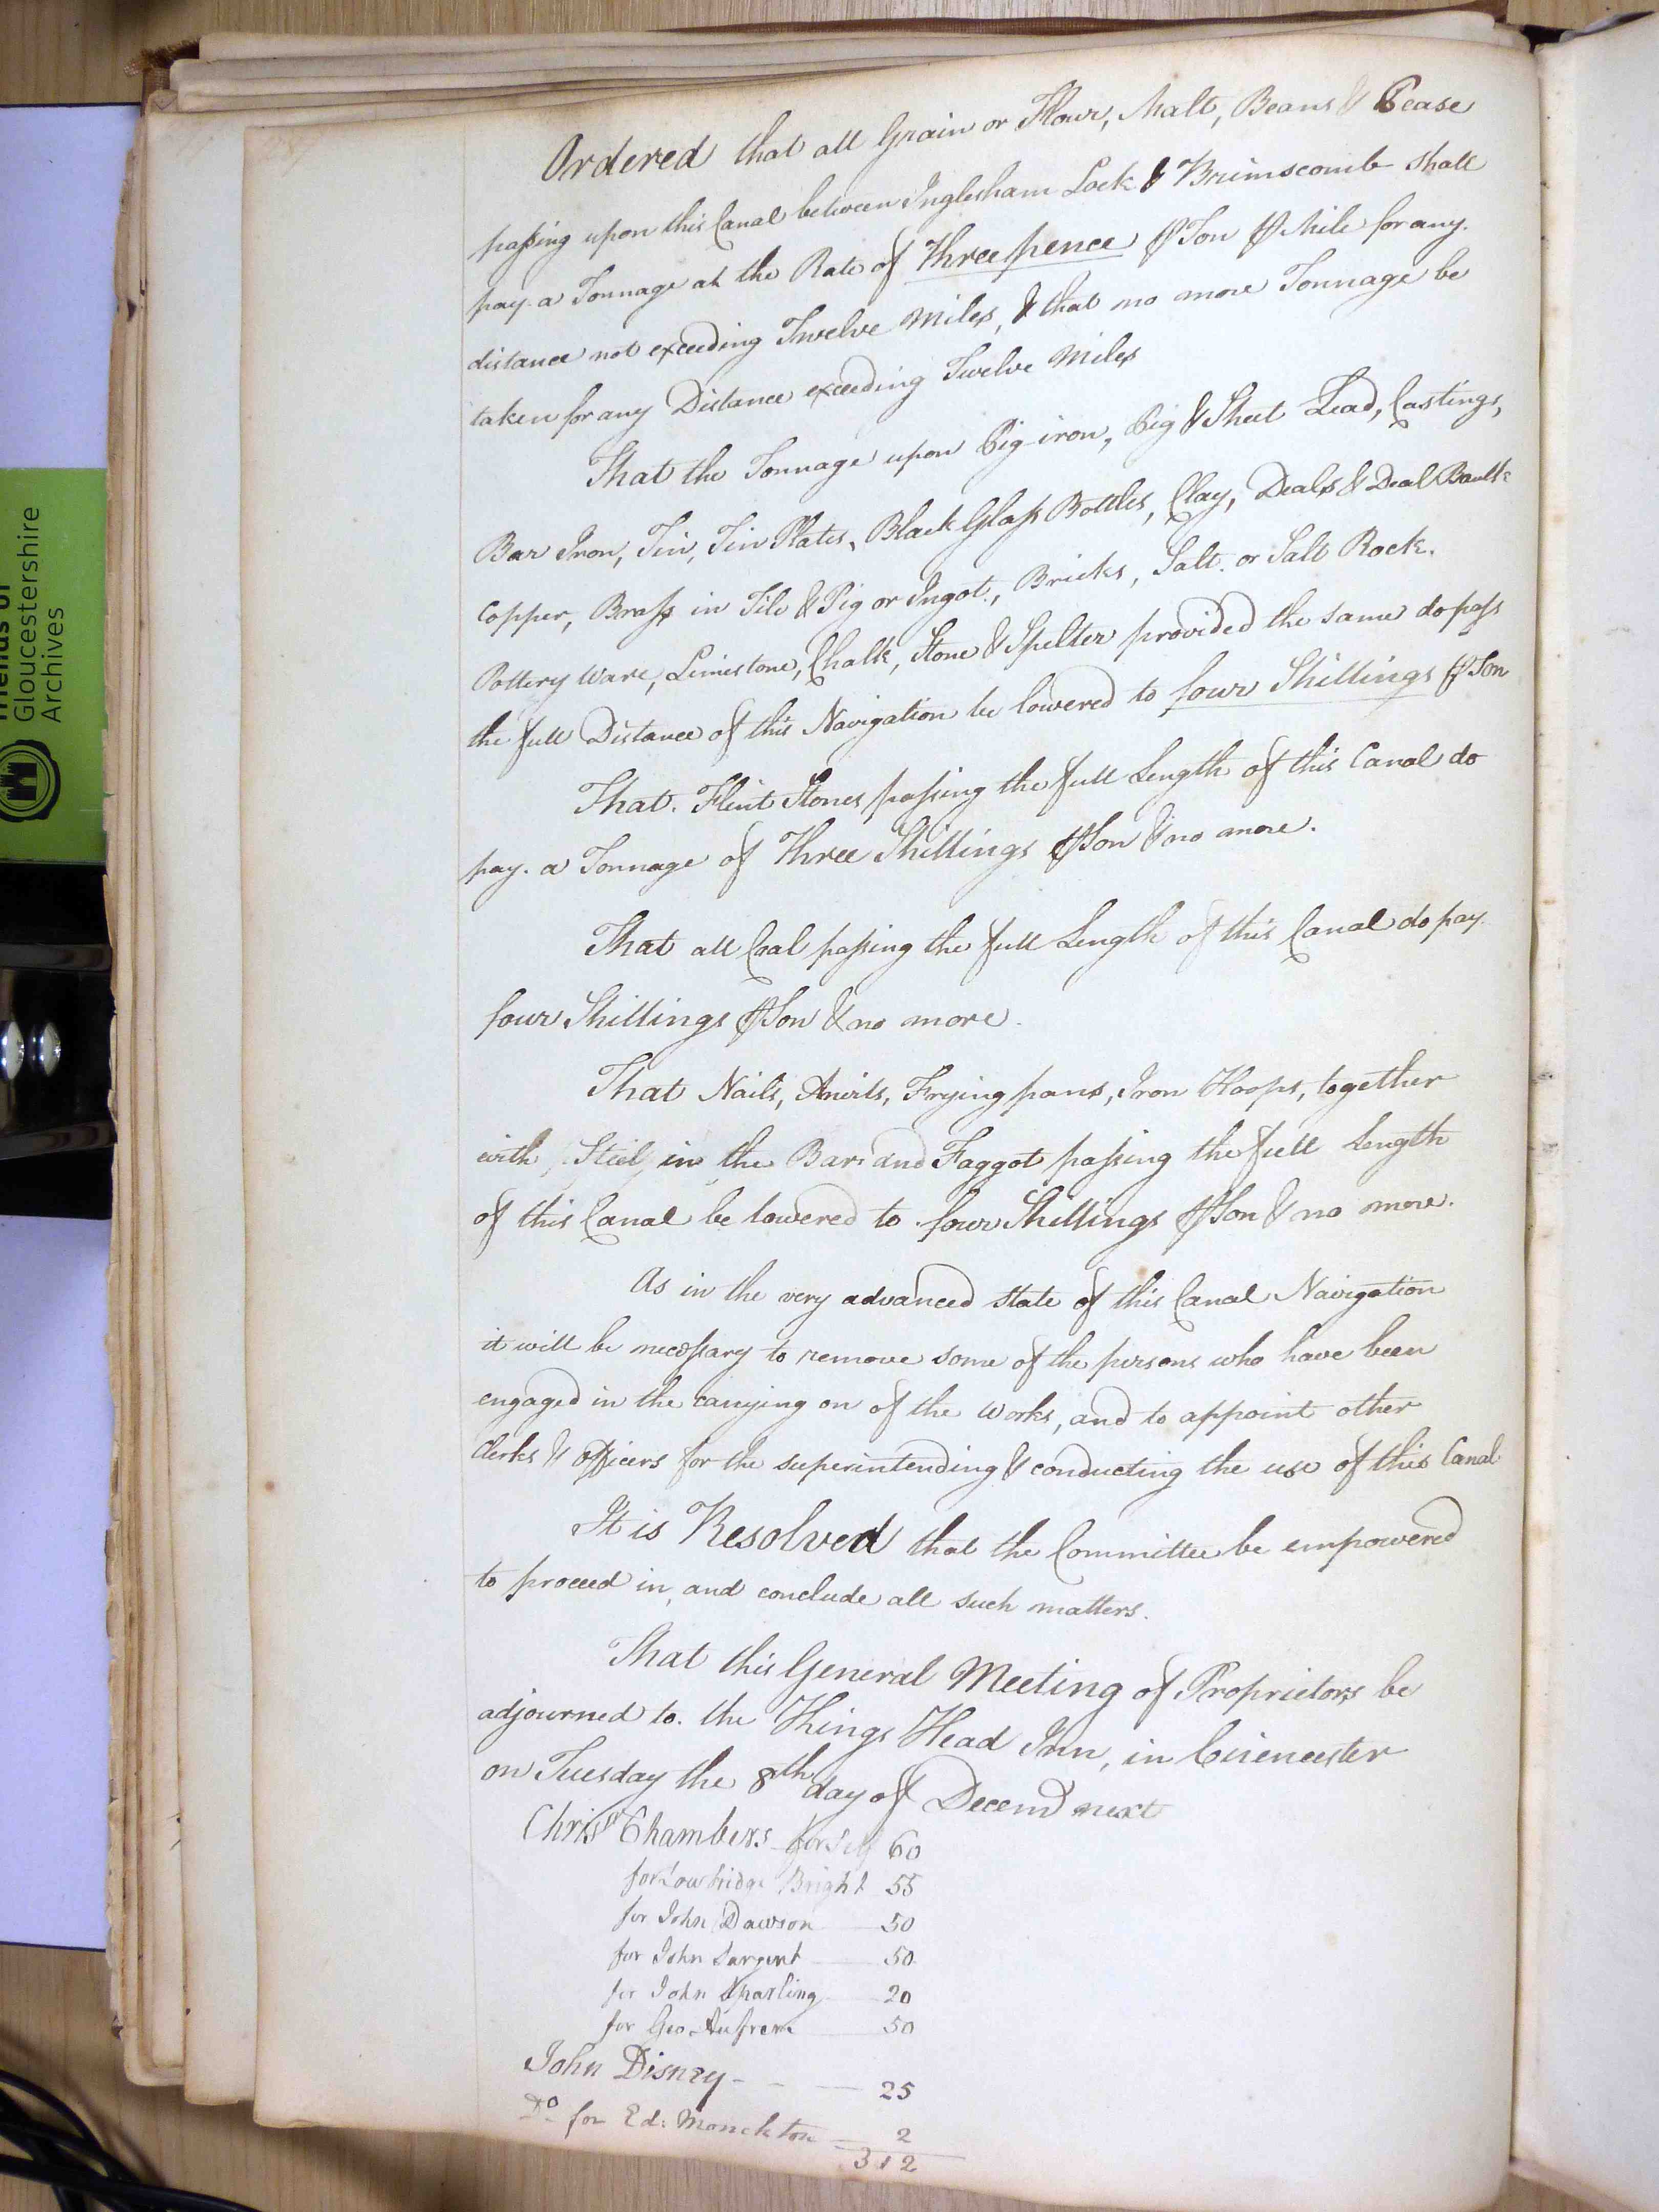 Ordered that all Grain or Flour, Malt, Beans & Pease
passing upon this Canal between Inglesham Lock & Brimscomb shall
pay a Tonnage at the Rate of Three pence ⅌ Ton ⅌ Mile for any
distance not exceeding Twelve Miles, & that no more Tonnage be
taken for any Distance exceeding Twelve Miles
That the Tonnage upon Pig-iron, Pig & Sheet Lead, Castings,
Bar Iron, Tin, Tin Plates, Black Glass Bottles, Clay, Deals & Deal Baulk
Copper, Brass in Tile & Pig or Ingot, Bricks, Salt or Salt Rock.
Pottery Ware, Limestone, Chalk, Stone & Spelter provided the same do pass
the full Distance of this Navigation be lowered to four Shillings ⅌ Ton
That Flint Stones passing the full Length of this Canal do
pay a Tonnage of Three Shillings ⅌ Ton & no more.
That all Coal passing the full Length of this Canal do pay
four Shillings ⅌ Ton & no more.
That Nails, Anvils, Frying pans, Iron Hoops, together
with Steel in the Bar and Faggot passing the full Length
of this Canal be lowered to four Shillings ⅌ Ton & no more.
As in the very advanced state of this Canal Navigation
it will be necessary to remove some of the persons who have been
engaged in the carrying on of the Works, and to appoint other
Clerks & Officers for the superintending & conducting the use of this Canal
It is Resolved that the Committee be empowered
to proceed in, and conclude all such matters.
That this General Meeting of Proprietors be
adjourned to the Kings Head Inn, in Cirencester
on Tuesday the 8th day of Decem.r next
Chris.r Chambers for Self 60
for Lowbridge Bright 55
for John Dawson 50
for John Sargent 50
for John Sparling 20
for Geo. Aufrere 50
John Disney 25
Do. for Ed: Monckton 2
312
Gloucestershire
Archives